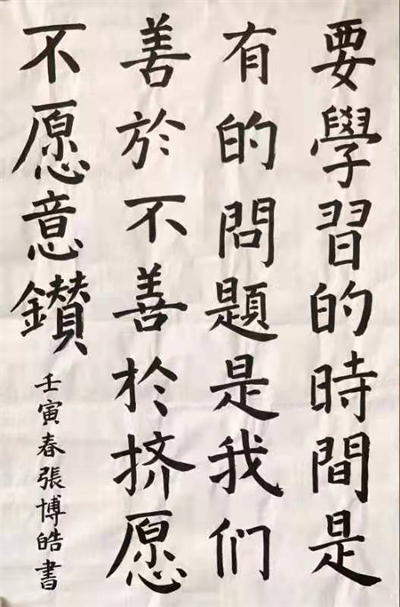 要學習的時間是
有的問題是我们
善於不善於挤愿
不愿意鑚
壬寅春張博皓書